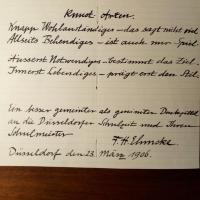 Kunst Arten.
Knapp Wohlanständiges – das sagt nicht viel
Allseits Behendiges – ist auch nur Spiel.
Äusserst Notwendiges – bestimmt das Ziel –
Innerst Lebendiges – prägt erst den Stil.
Ein besser gemeinter als gereimter Denkzettel
an die Düsseldorfer Schulzeit und Ihren
Schulmeister
F. H. Ehmcke
Düsseldorf den 23. März 1906.